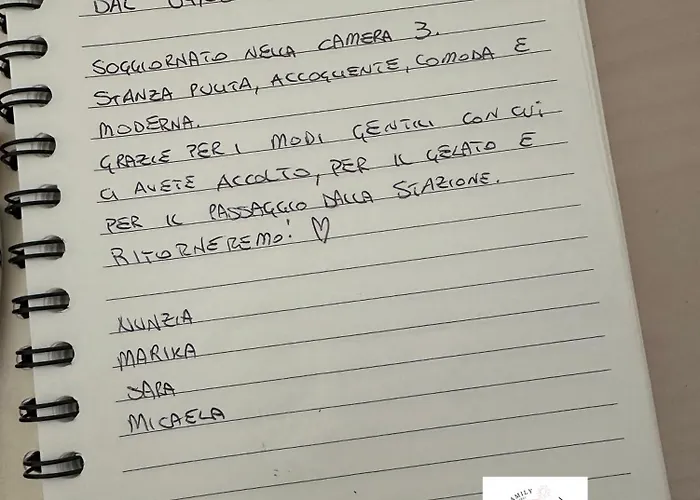 DAL
SOGGIORNATO NELLA CAMERA 3.
STANZA PULITA, ACCOGLIENTE, COMODA E
MODERNA.
GRAZIE PER I MODI GENTILI CON CUI
CI AVETE ACCOLTO, PER IL GELATO E
PER IL PASSAGGIO DALLA STAZIONE.
RITORNEREMO! ♡
NUNZIA
MARIKA
SARA
MICAELA
FAMILY